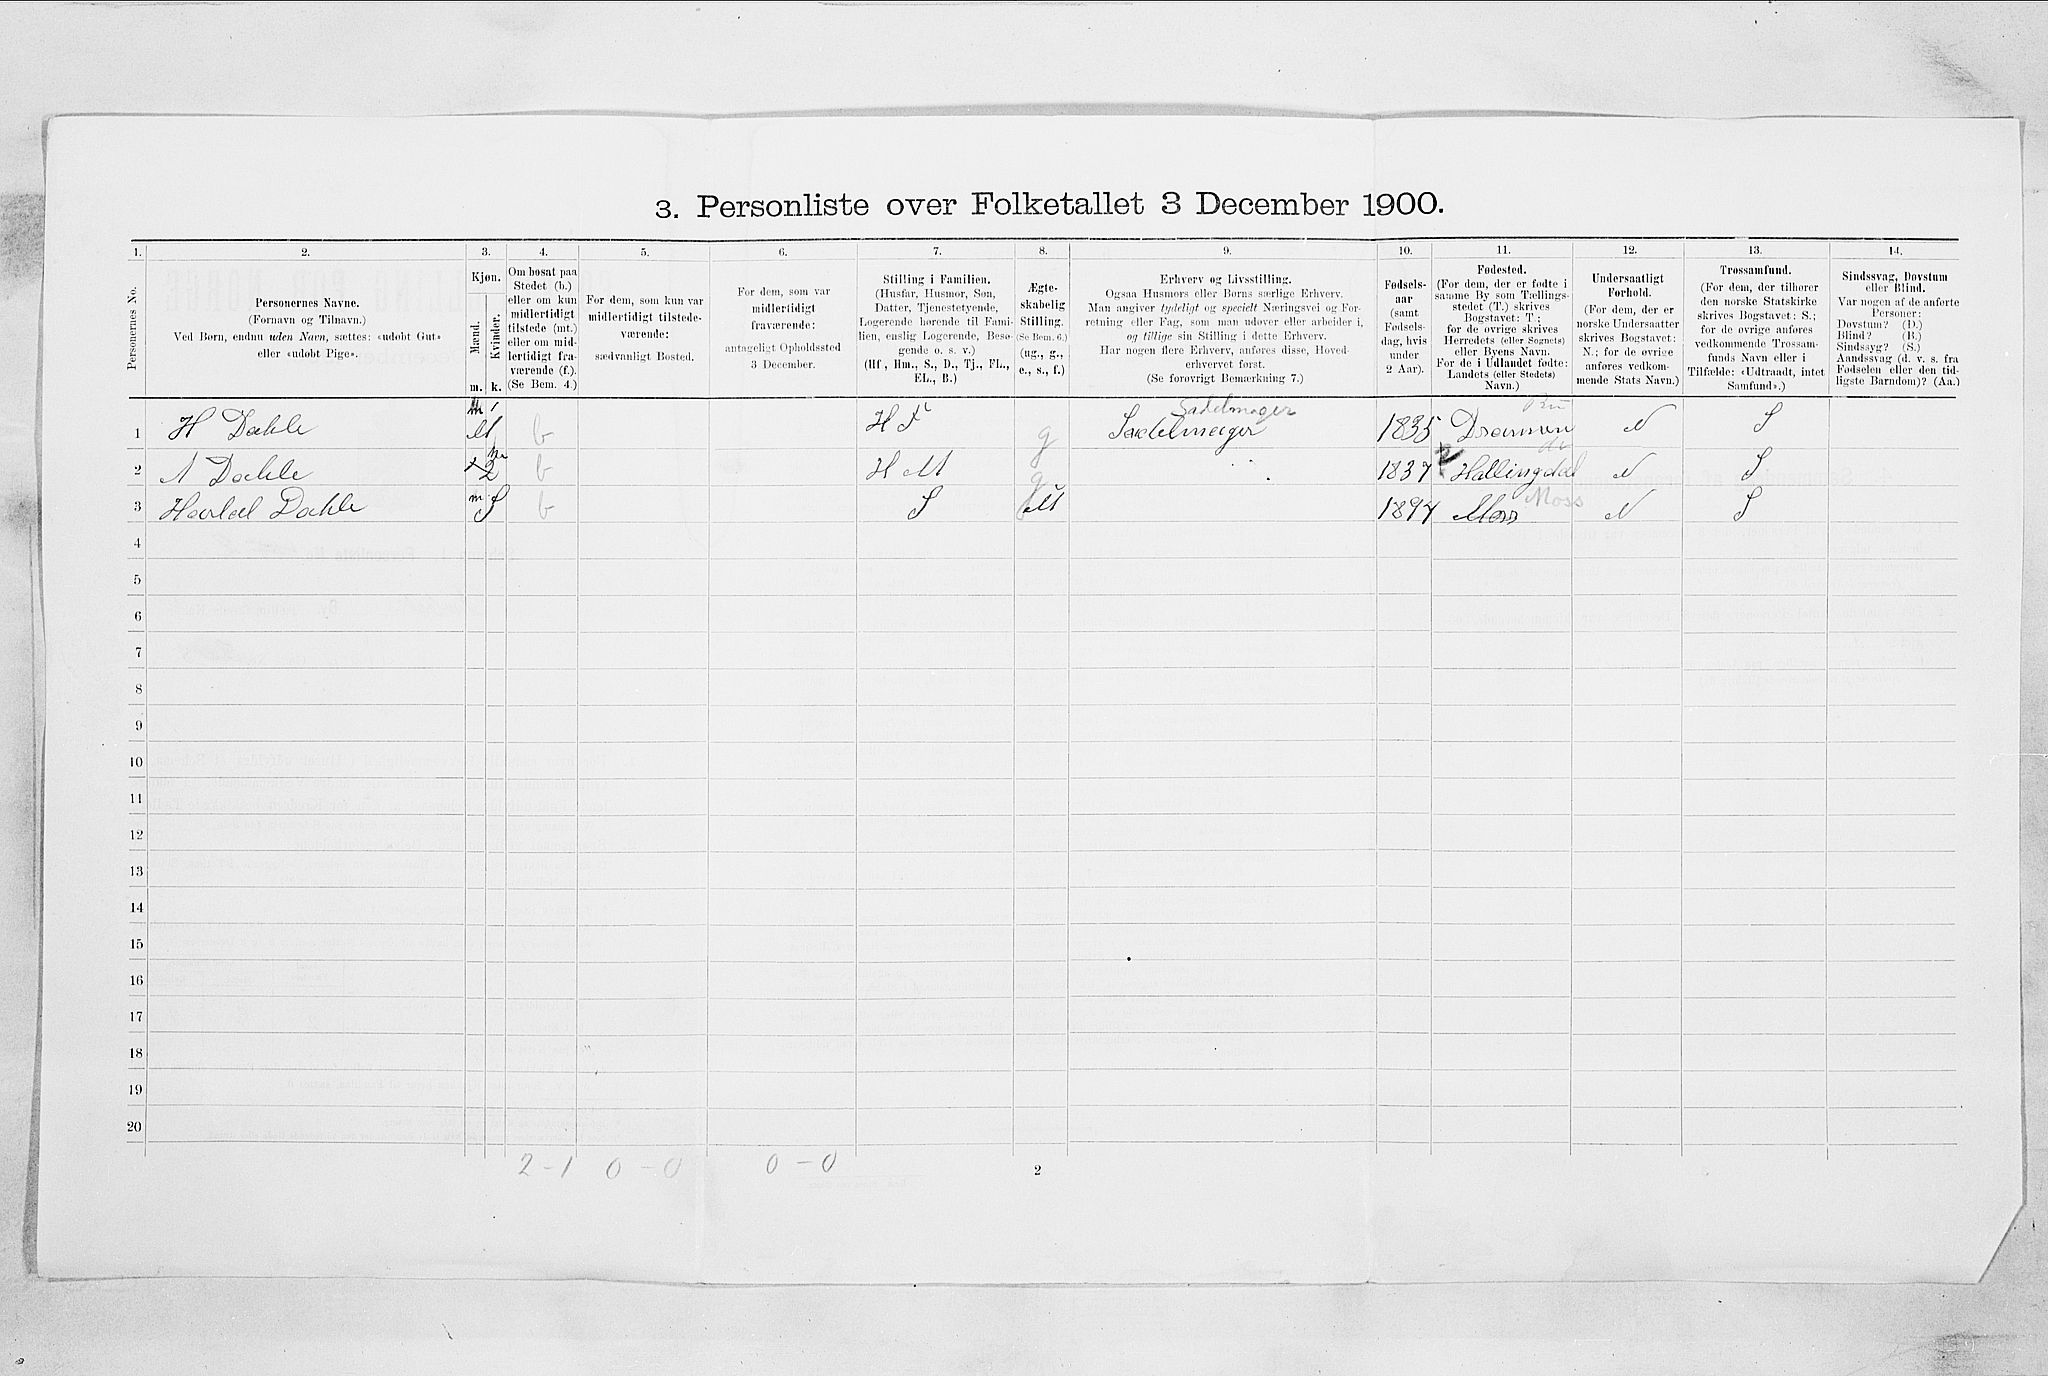 3. Personliste over Folketallet 3 December 1900.
1.
2.
3.
4.
5.
6.
7.
8.
9.
10.
11.
12.
13.
14.
Personernes No.
Personernes Navne.
(Fornavn og Tilnavn.)
Ved Børn, endnu uden Navn, sættes: «udøbt Gut»
eller «udøbt Pige».
Kjøn.
Mænd.
Kvinder.
m. k.
Om bosat paa
Stedet (b.)
eller om kun
midlertidigt
tilstede (mt.)
eller om mid-
lertidigt fra-
værende (f.).
(Se Bem. 4.)
For dem, som kun var
midlertidigt tilstede-
værende:
sædvanligt Bosted.
For dem, som var
midlertidigt
fraværende:
antageligt Opholdssted
3 December.
Stilling i Familien.
(Husfar, Husmor, Søn,
Datter, Tjenestetyende,
Logerende hørende til Fami-
lien, enslig Logerende, Besø-
gende o. s. v.)
(Hf, Hm., S., D., Tj., FL.,
EL., B.)
Ægte-
skabelig
Stilling.
(Se Bem. 6.)
(ug., g.,
e., s., f.)
Erhverv og Livsstilling.
Ogsaa Husmors eller Børns særlige Erhverv.
Man angiver tydeligt og specielt Næringsvei og For-
retning eller Fag, som man udøver eller arbeider i,
og tillige sin Stilling i dette Erhverv.
Har nogen flere Erhverv, anføres disse, Hoved-
erhvervet først.
(Se forøvrigt Bemærkning 7.)
Fødsels-
aar
(samt
Fødsels-
dag, hvis
under
2 Aar).
Fødested.
(For dem, der er fødte i
samme By som Tællings-
stedet (T.) skrives
Bogstavet: T.;
for de øvrige skrives
Herredets (eller Sognets)
eller Byens Navn.
For de i Udlandet fødte:
Landets (eller Stedets)
Navn.)
Undersaatligt
Forhold.
(For dem, der er
norske Undersaatter
skrives Bogstavet:
N.; for de øvrige
anføres vedkom-
mende Stats Navn.)
Trossamfund.
(For dem, der tilhører
den norske Statskirke
skrives Bogstavet: S.;
for de øvrige anføres
vedkommende Trossam-
funds Navn eller i
Tilfælde: «Udtraadt, intet
Samfund».)
Sindssvag, Døvstum
eller Blind.
Var nogen af de anførte
Personer:
Døvstum? (D.)
Blind? (B.)
Sindssyg? (S.)
Aandssvag (d. v. s. fra
Fødselen eller den tid-
ligste Barndom)? (Aa.)
1 H Dahle M b H F g Sadelmager Sadelmager 1835 Drammen N S
2 A Dahle 2 b H M g 1837 Hallingdal N S
3 b S M 1897 Moss Moss N S
4
5
6
7
8
9
10
11
12
13
14
15
16
17
18
19
20
2-1 0-0 0-0
2